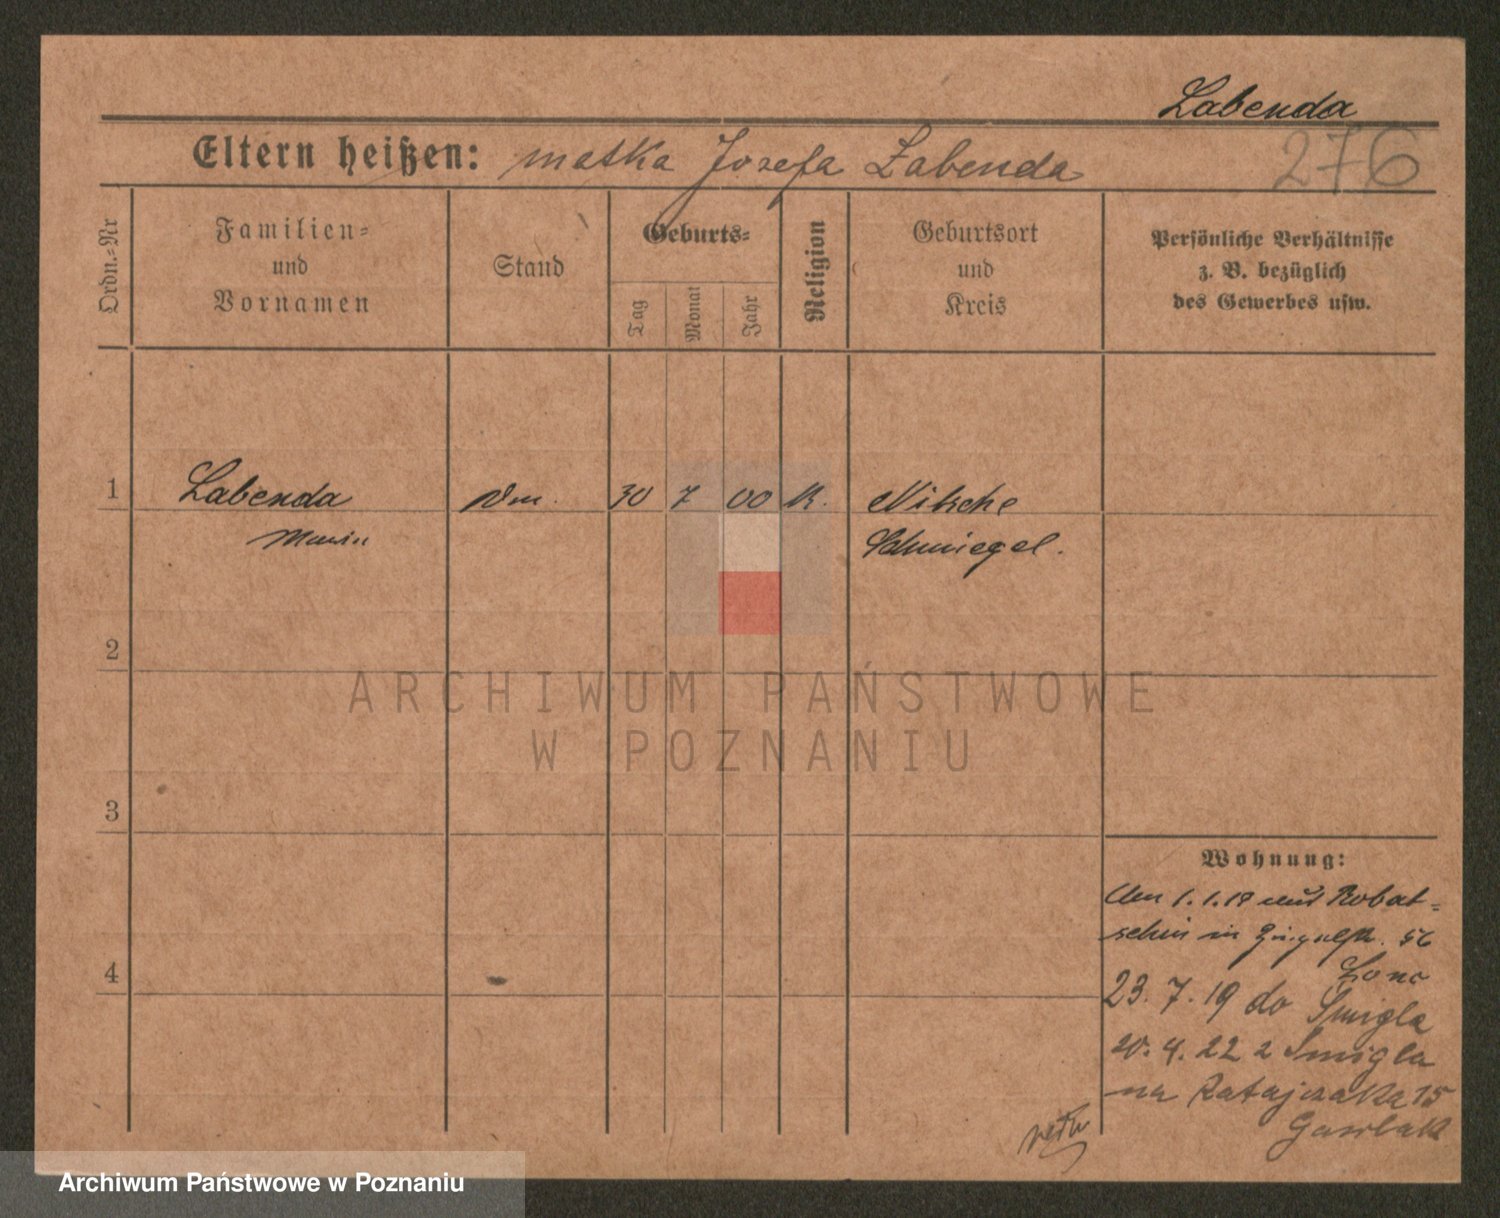 Labenda
276
Eltern heißen: matka Josefa Łabenda
Ordn.=Nr
Familien=
und
Vornamen
Stand
Geburts=
Tag
Monat
Jahr
Religion
Geburtsort
und
Kreis
Persönliche Verhältnisse
z. B. bezüglich
des Gewerbes usw.
1
Labenda
30 7 00 K.
Nitsche
Schmiegel.
2
ARCHIWUM PAŃSTWOWE
W POZNANIU
3
4
Wohnung:
1.1.19 aus Robat=
schin in 56
23. 7. 19 do Śmigla
20. 4. 22 z Śmigla
na Ratajczaka 15
Archiwum Państwowe w Poznaniu